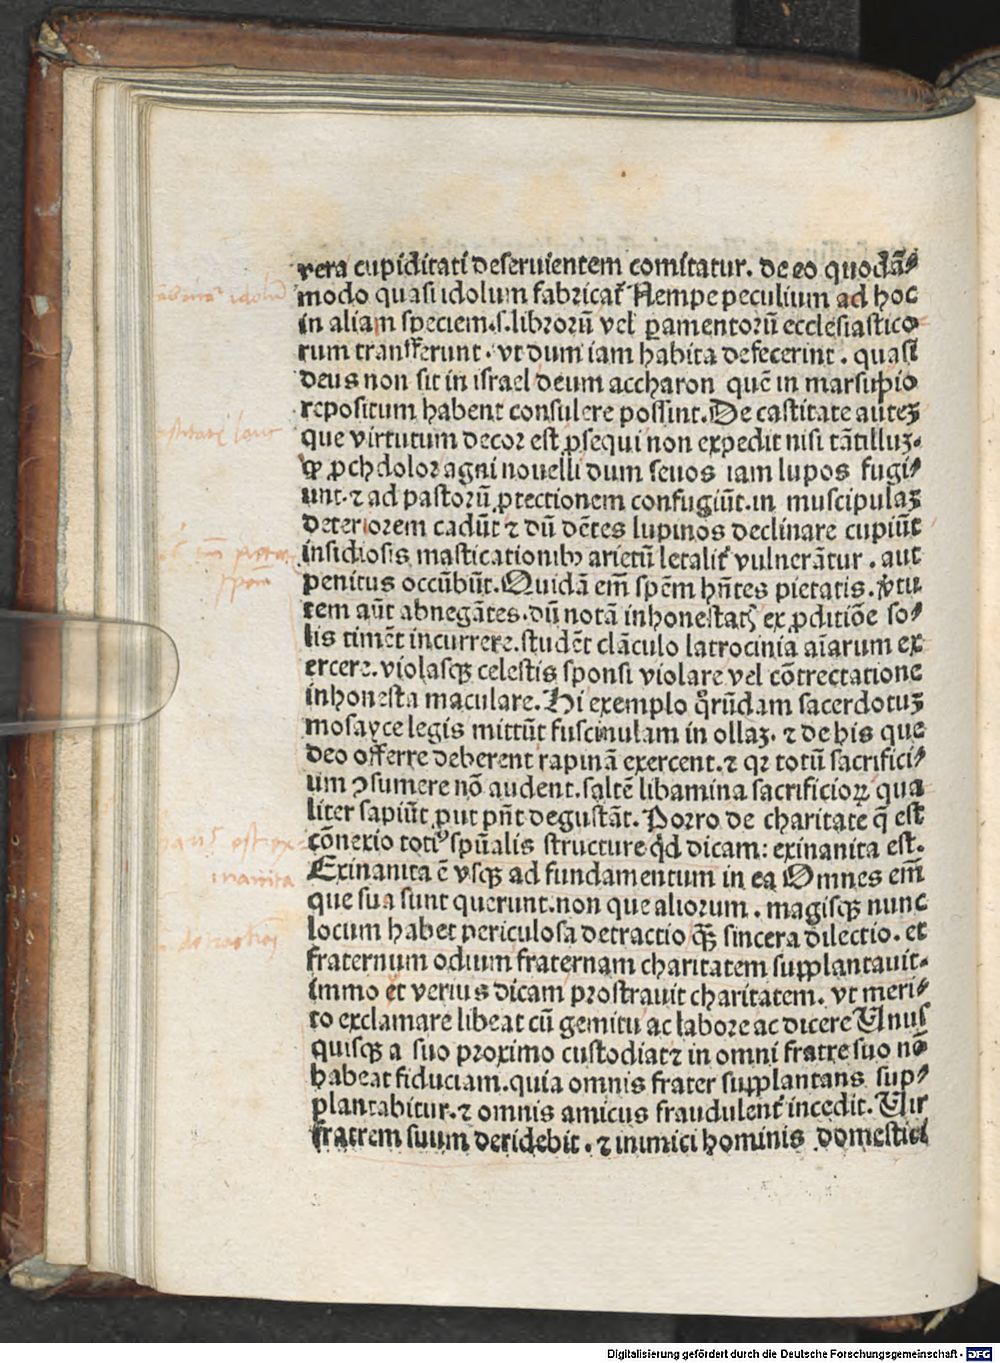 vera cupiditati deseruientem comitatur. de eo quodā⸗
modo quasi idolum fabricat᷑ Nempe peculium ad hoc
in aliam speciem.s.librorū vel ꝑamentorū ecclesiastico
rum transferunt. vt dum iam habita defecerint. quasi
deus non sit in israel deum accharon quē in marsupio
repositum habent consulere possint. De castitate autez
que virtutum decor est ꝓsequi non expedit nisi tātilluz.
ꝙ ꝓch dolor agni nouelli dum seuos iam lupos fugi⸗
unt. ⁊ ad pastorū ꝓtectionem confugiūt. in muscipulaz
deteriorem cadūt ⁊ dū dētes lupinos declinare cupiūt
insidiosis masticationibꝰ arietū letalit᷑ vulnerātur. aut
penitus occūbūt. Quidā em̄ spēm hn̄tes pietatis. v̓tu
tem aūt abnegātes. dū notā inhonestatꝭ ex ꝑditiōe so⸗
lis timēt incurrere. studēt clāculo latrocinia aīarum ex
ercere. violasqꝫ celestis sponsi violare vel cōtrectatione
inhonesta maculare. Hi exemplo qͦrūdam sacerdotuz
mosayce legis mittūt fuscinulam in ollaz. ⁊ de his que
deo offerre deberent rapinā exercent. ⁊ qꝛ totū sacrifici⸗
um ꝯsumere nō audent. saltē libamina sacrificioꝝ qua
liter sapiūt ꝓut pn̄t degustāt. Porro de charitate q̄ est
cōnexio totiꝰ spūalis structure qd̓ dicam: exinanita est.
Exinanita ē vsqꝫ ad fundamentum in ea Omnes em̄
que sua sunt querunt. non que aliorum. magisqꝫ nunc
locum habet periculosa detractio qꝫ̄ sincera dilectio. et
fraternum odium fraternam charitatem supplantauit.
immo et verius dicam prostrauit charitatem. vt meri⸗
to exclamare libeat cū gemitu ac labore ac dicere Unus
quisqꝫ a suo proximo custodiat ⁊ in omni fratre suo nō
habeat fiduciam. quia omnis frater supplantans sup⸗
plantabitur. ⁊ omnis amicus fraudulent᷑ incedit. Uir
fratrem suum deridebit. ⁊ inimici hominis domestici
idolum
est ex
inanita
Digitalisierung gefördert durch die Deutsche Forschungsgemeinschaft - DFG